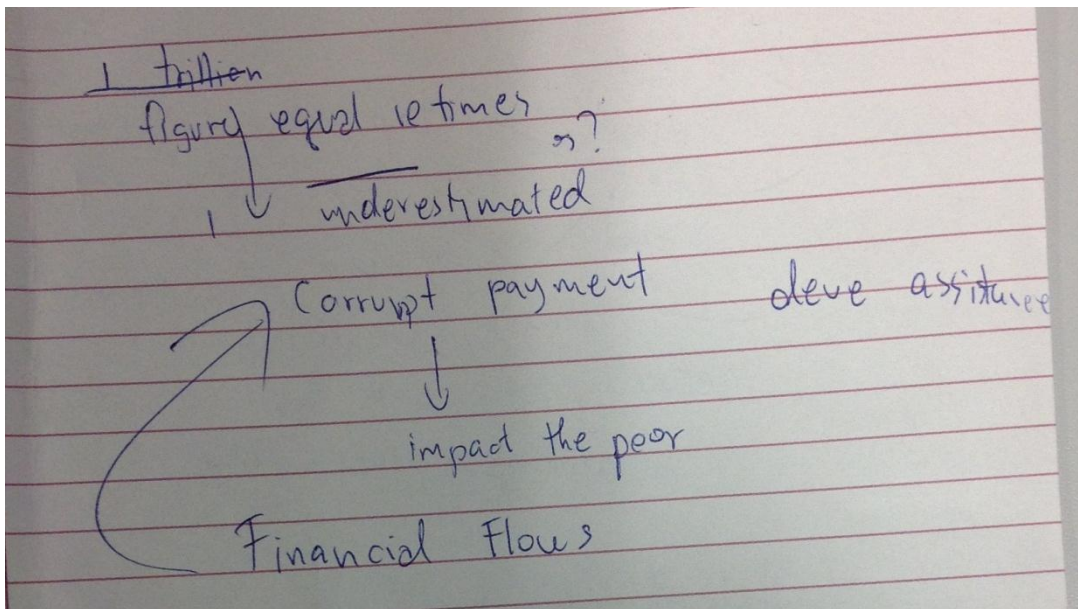 1 trillion
figure equal 10 times
?
1 underestimated
Corrupt payment deve assitance
impact the poor
Financial Flows